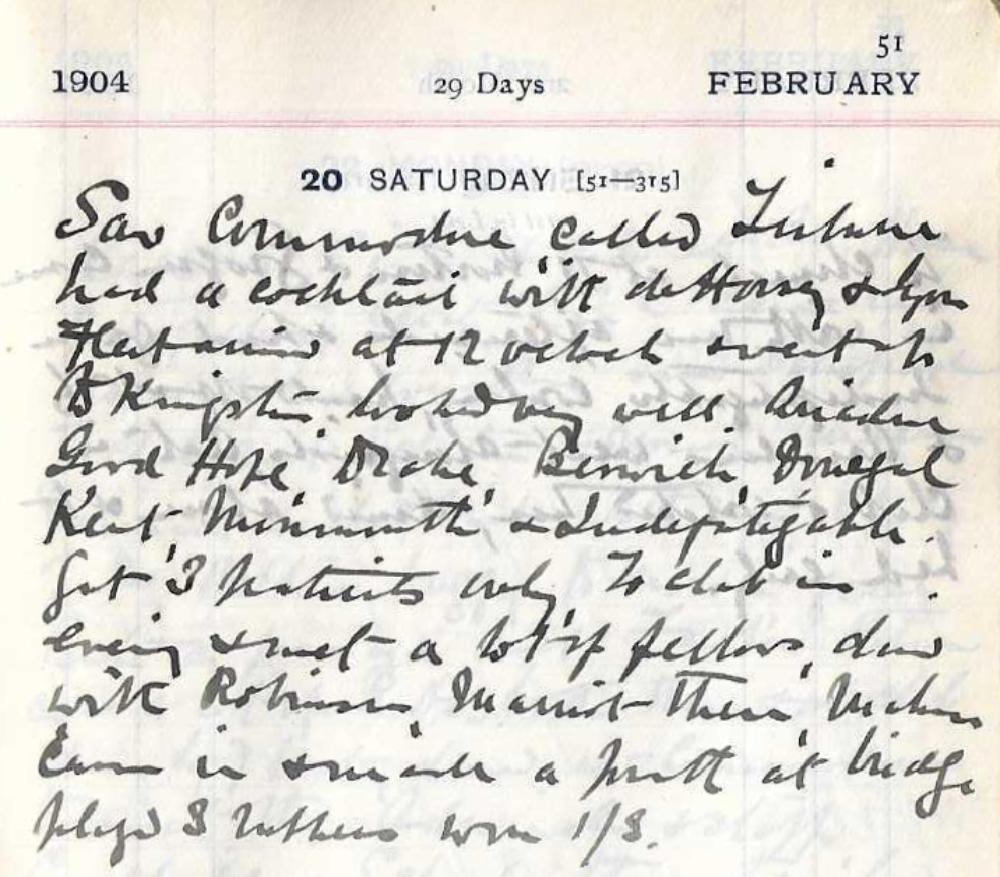 51
1904 29 Days FEBRUARY
20 SATURDAY [51—315]
Saw Commodore called Tribune
had a cocktail with de Horsey & Lyon
Fleet arrived at 12 oclock & went to
Kingston, looked very well. Ariadne
Good Hope, Drake, Berwick, Donegal
Kent, Monmouth, & Indefatigable.
Got 3 patients only, To club in
evening & met a lot of fellows, dined
with Robinson, Marriot there,
Came in & made a fourth at bridge
played 3 rubbers won 1/3.